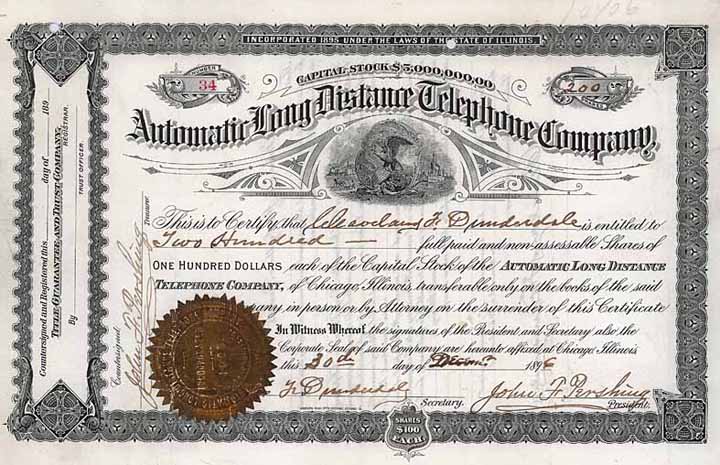 10406
INCORPORATED 1895 UNDER THE LAWS OF THE STATE OF ILLINOIS.
CAPITAL STOCK $5,000,000,00
NUMBER
34
200
SHARES
Automatic Long Distance Telephone Company,
This is to Certify that Cleaveland F. Dunderdale is entitled to
Two Hundred — full paid and non-assessable Shares of
ONE HUNDRED DOLLARS each of the Capital Stock of the AUTOMATIC LONG DISTANCE
TELEPHONE COMPANY, of Chicago, Illinois, transferable only on the books of the said
Company, in person or by Attorney on the surrender of this Certificate
In Witness Whereof the signatures of the President and Secretary also the
Corporate Seal of said Company are hereunto affixed at Chicago, Illinois
this 30th day of Decem. 1896
F. Dunderdale
Secretary.
John F. Pershing
President.
SHARES
$100
EACH
Countersigned and Registered this day of 189
TITLE GUARANTEE AND TRUST COMPANY,
REGISTRAR.
By
TRUST OFFICER.
Countersigned
John F. Pershing
Treasurer.